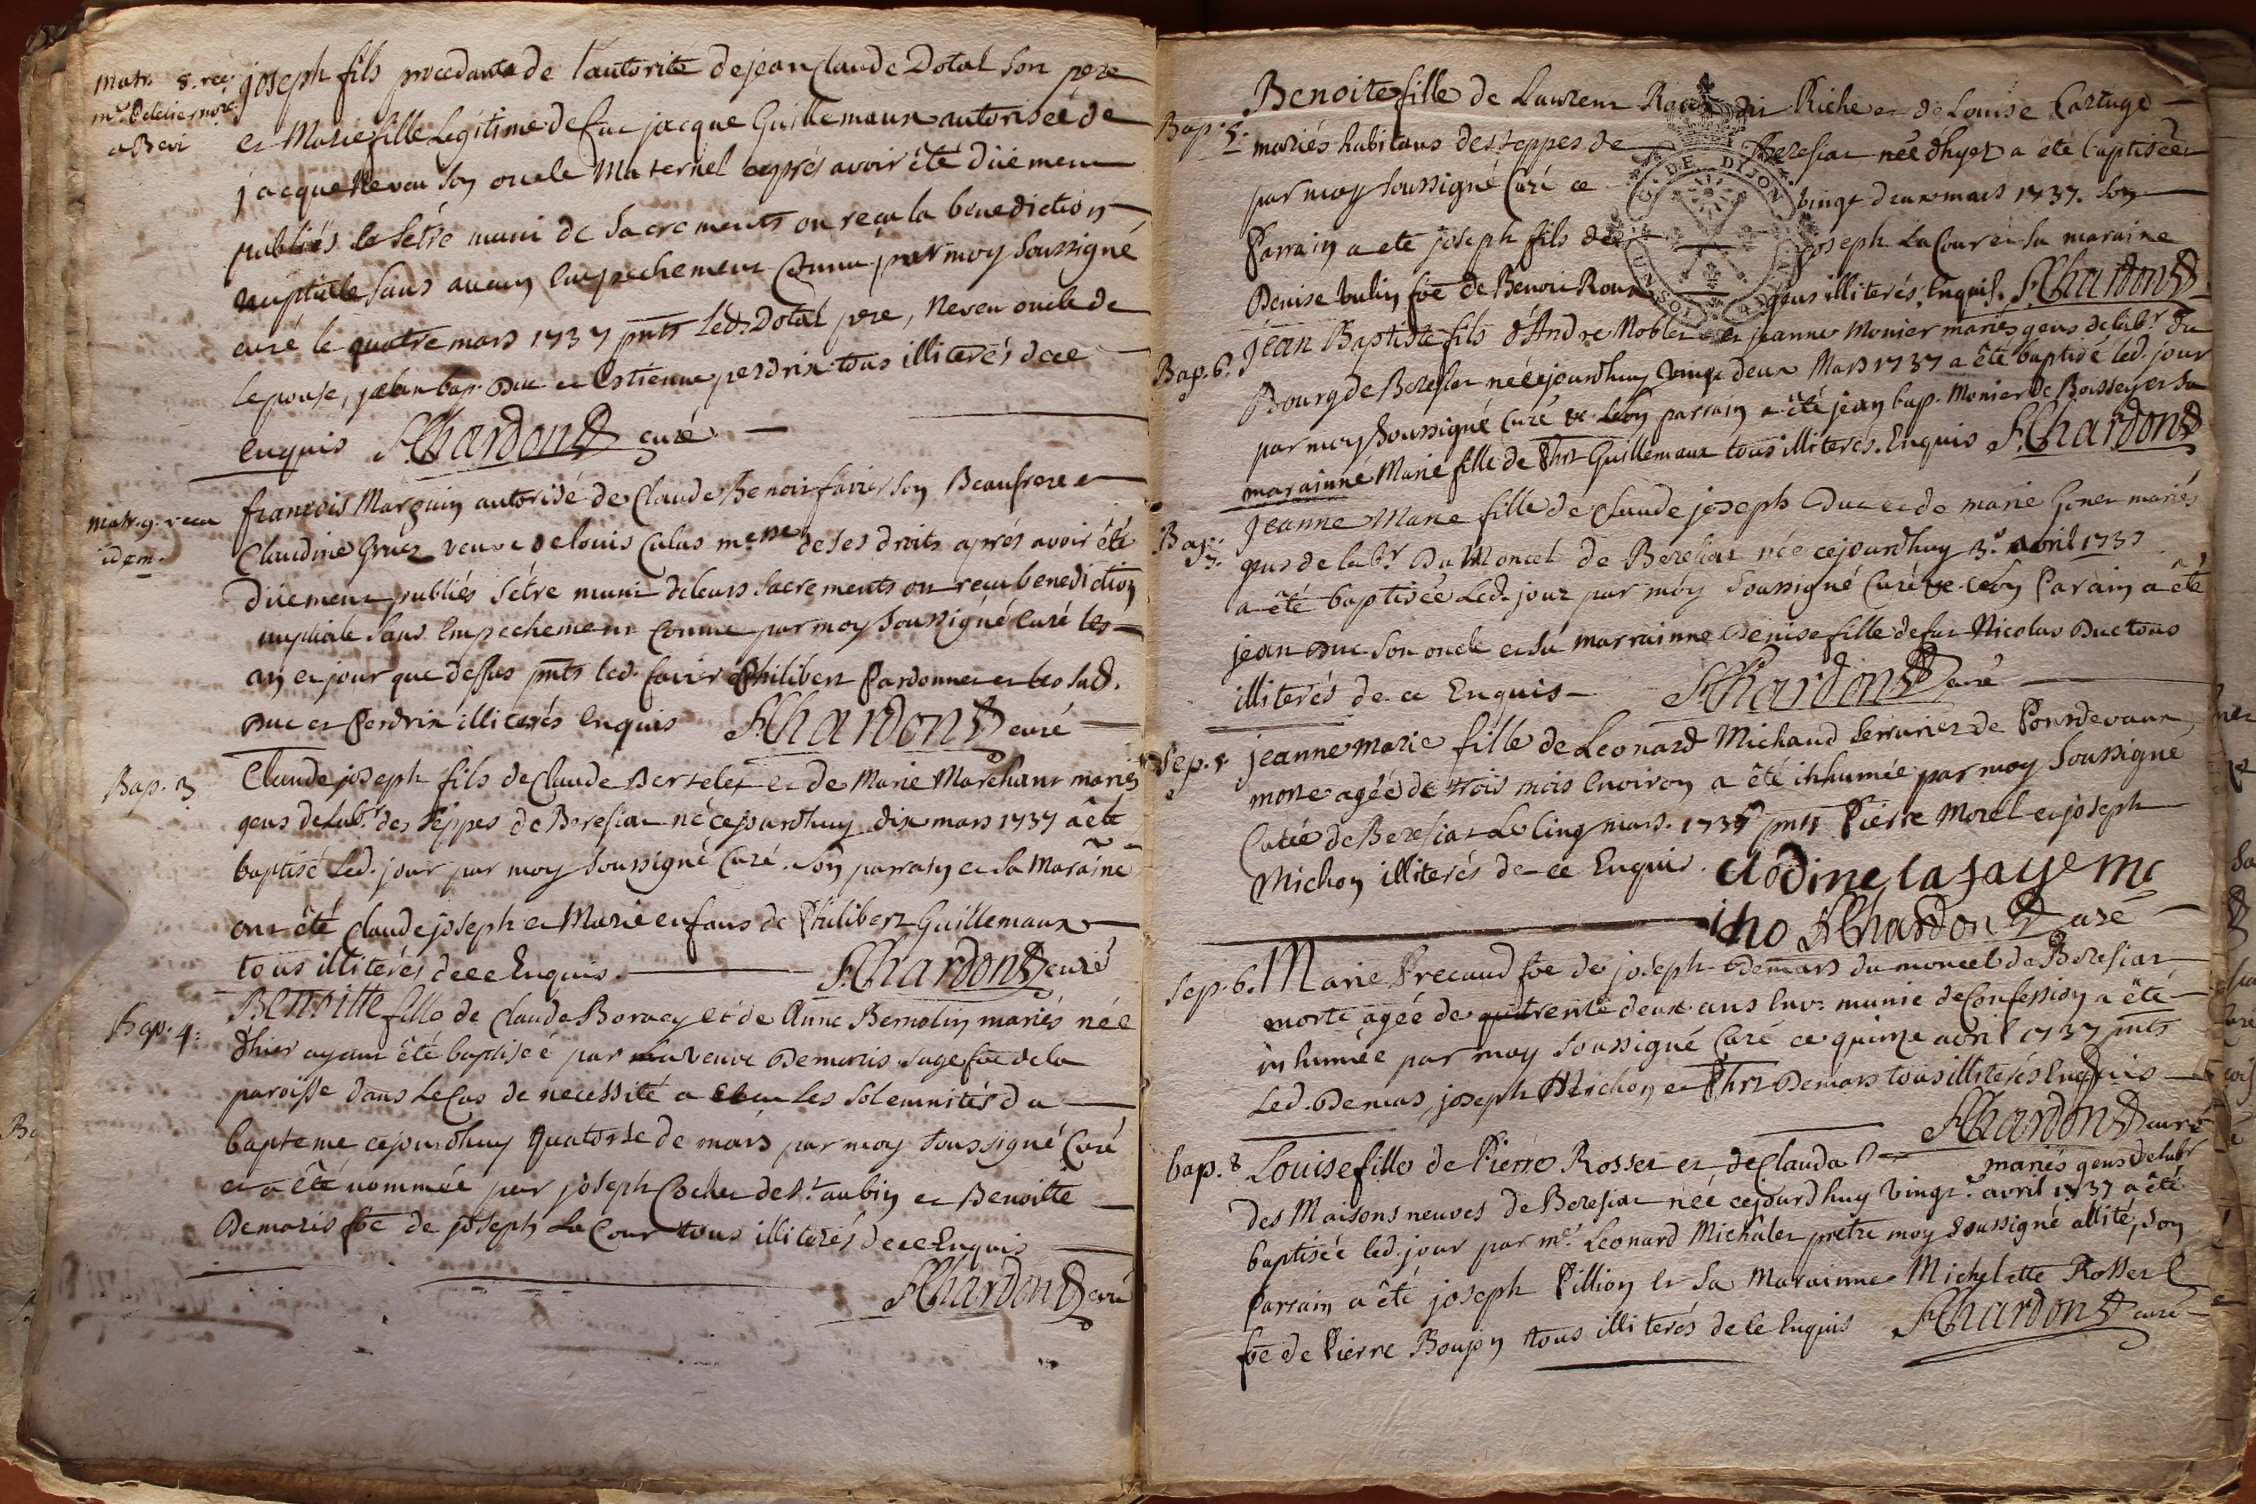 Matr. 8. rec.
joseph fils procedants de l'autorité de jean Claude Dotal son pere
a Beri
et Marie fille Legitime de feu jacque Guillemaux autorisée de
jacque Neveu son oncle Maternel aprés avoir été düement
publiés se sétre muni de sacrements on reçu la benediction
nuptiale sans aucun Empechement Connu par moy soussigné
curé le quatre mars 1737 pnts Led. Dotal pere, Neveu oncle de
lepouse, jean bap. Duc et Estienne perdrix tous illiterés de ce
enquis F. Chardon curé
Matr. 9. recu
idem.
francois Marguin autorisé de Claude Benoit favier son Beaufrere et
Claudine Gruez veuve de louis Calas mesne de ses droits aprés avoir été
düement publiés sétre muni de leurs sacrements on reçu benediction
nuptiale sans Empechement Connu par moy soussigné Curé les
an et jour que dessus pnts led. favier Philibert Pardonnet et les sud.
Duc et Perdrix illiterés enquis F. Chardon curé
Bap. 3
Claude joseph fils de Claude Bertelet et de Marie Marchant mariés
gens de labr. des seppes de Beresiat né cejourdhuy dix mars 1737 a été
baptisé Led. jour par moy soussigné Curé. son parrain et sa Maraine
ont été Claude joseph et Marie enfans de Philibert Guillemaux
tous illiterés de ce Enquis. F. Chardon curé
Bap. 4.
Benoitte fille de Claude Borney et de Anne Bernolin mariés née
d'hier ayant été baptiseé par la veuve Demaris sage fe de la
paroisse dans le Cas de necessité a les solemnités du
bapteme cejourdhuy quatorse de mars par moy soussigné Curé
et a été nommée par joseph Cochet de St. aubin et Benoitte
Demaris fe de joseph La Cour tous illiterés de ce Enquis
F. Chardon curé
Bap. 5.
Benoite fille de Laurent dit Riche et de Louise Cartuge
mariés habitans des seppes de Beresiat née d'hyer a été baptisée
par moy soussigné Curé ce vingt deux mars 1737. son
Parrain a eté joseph fils de joseph La Cour et sa maraine
Denise Vulin fe de Benoit Roux gens illiterés, Enquis. F. Chardon
Bap. 6.
jean Baptiste fils d'André Noblet et jeanne Monier mariés gens de labr. du
Bourg de Beresiat né cejourdhuy vingt deux Mars 1737 a été baptisé led. jour
par moy soussigné Curé parrain a été jean bap. Monier de Boissey et sa
marainne Marie fille de Phrt Guillemaux tous illiterés. Enquis F. Chardon
Bap. 7.
jeanne Marie fille de Claude joseph Duc et de marie Genet mariés
gens de labr. Du Moncel de Beresiat née cejourdhuy 3e. avril 1737
a été baptisée Led. jour par moy soussigné Curé Parain a été
jean Duc son oncle et sa marrainne Denise fille de feu Nicolas Duc tous
illiterés de ce Enquis F. Chardon curé
Sep. 5.
jeanne Marie fille de Leonard Michaud serrurier de Pontdevaux,
morte ageé de trois mois Environ a été inhumée par moy soussigné
Curé de Beresiat Le Cinq mars. 1737 pnts Pierre Morel et joseph
Michon illiterés de ce Enquis. clödine, lafaye mc
iho F. Chardon curé
Sep. 6.
Marie Precaud fe de joseph Demars du moncel de Beresiat
morte agée de trente deux ans Env. munie de Confession a été
inhumée par moy soussigné Curé ce quinze avril 1737 pnts
Led. Demars, joseph Michon et Phrt Demars tous illiterés Enquis
F. Chardon curé
bap. 8
Louise fille de Pierre Rosset et de Clauda mariés gens de labr
des Maisons neuves de Beresiat neé cejourdhuy vingt. avril 1737 a été
baptisée led. jour par mr. Leonard Michalet pretre moy soussigné allité, son
parrain a été joseph Pillion et sa Marainne Michelette Rosset
fe de Pierre Boujon tous illiterés de ce Enquis F. Chardon curé